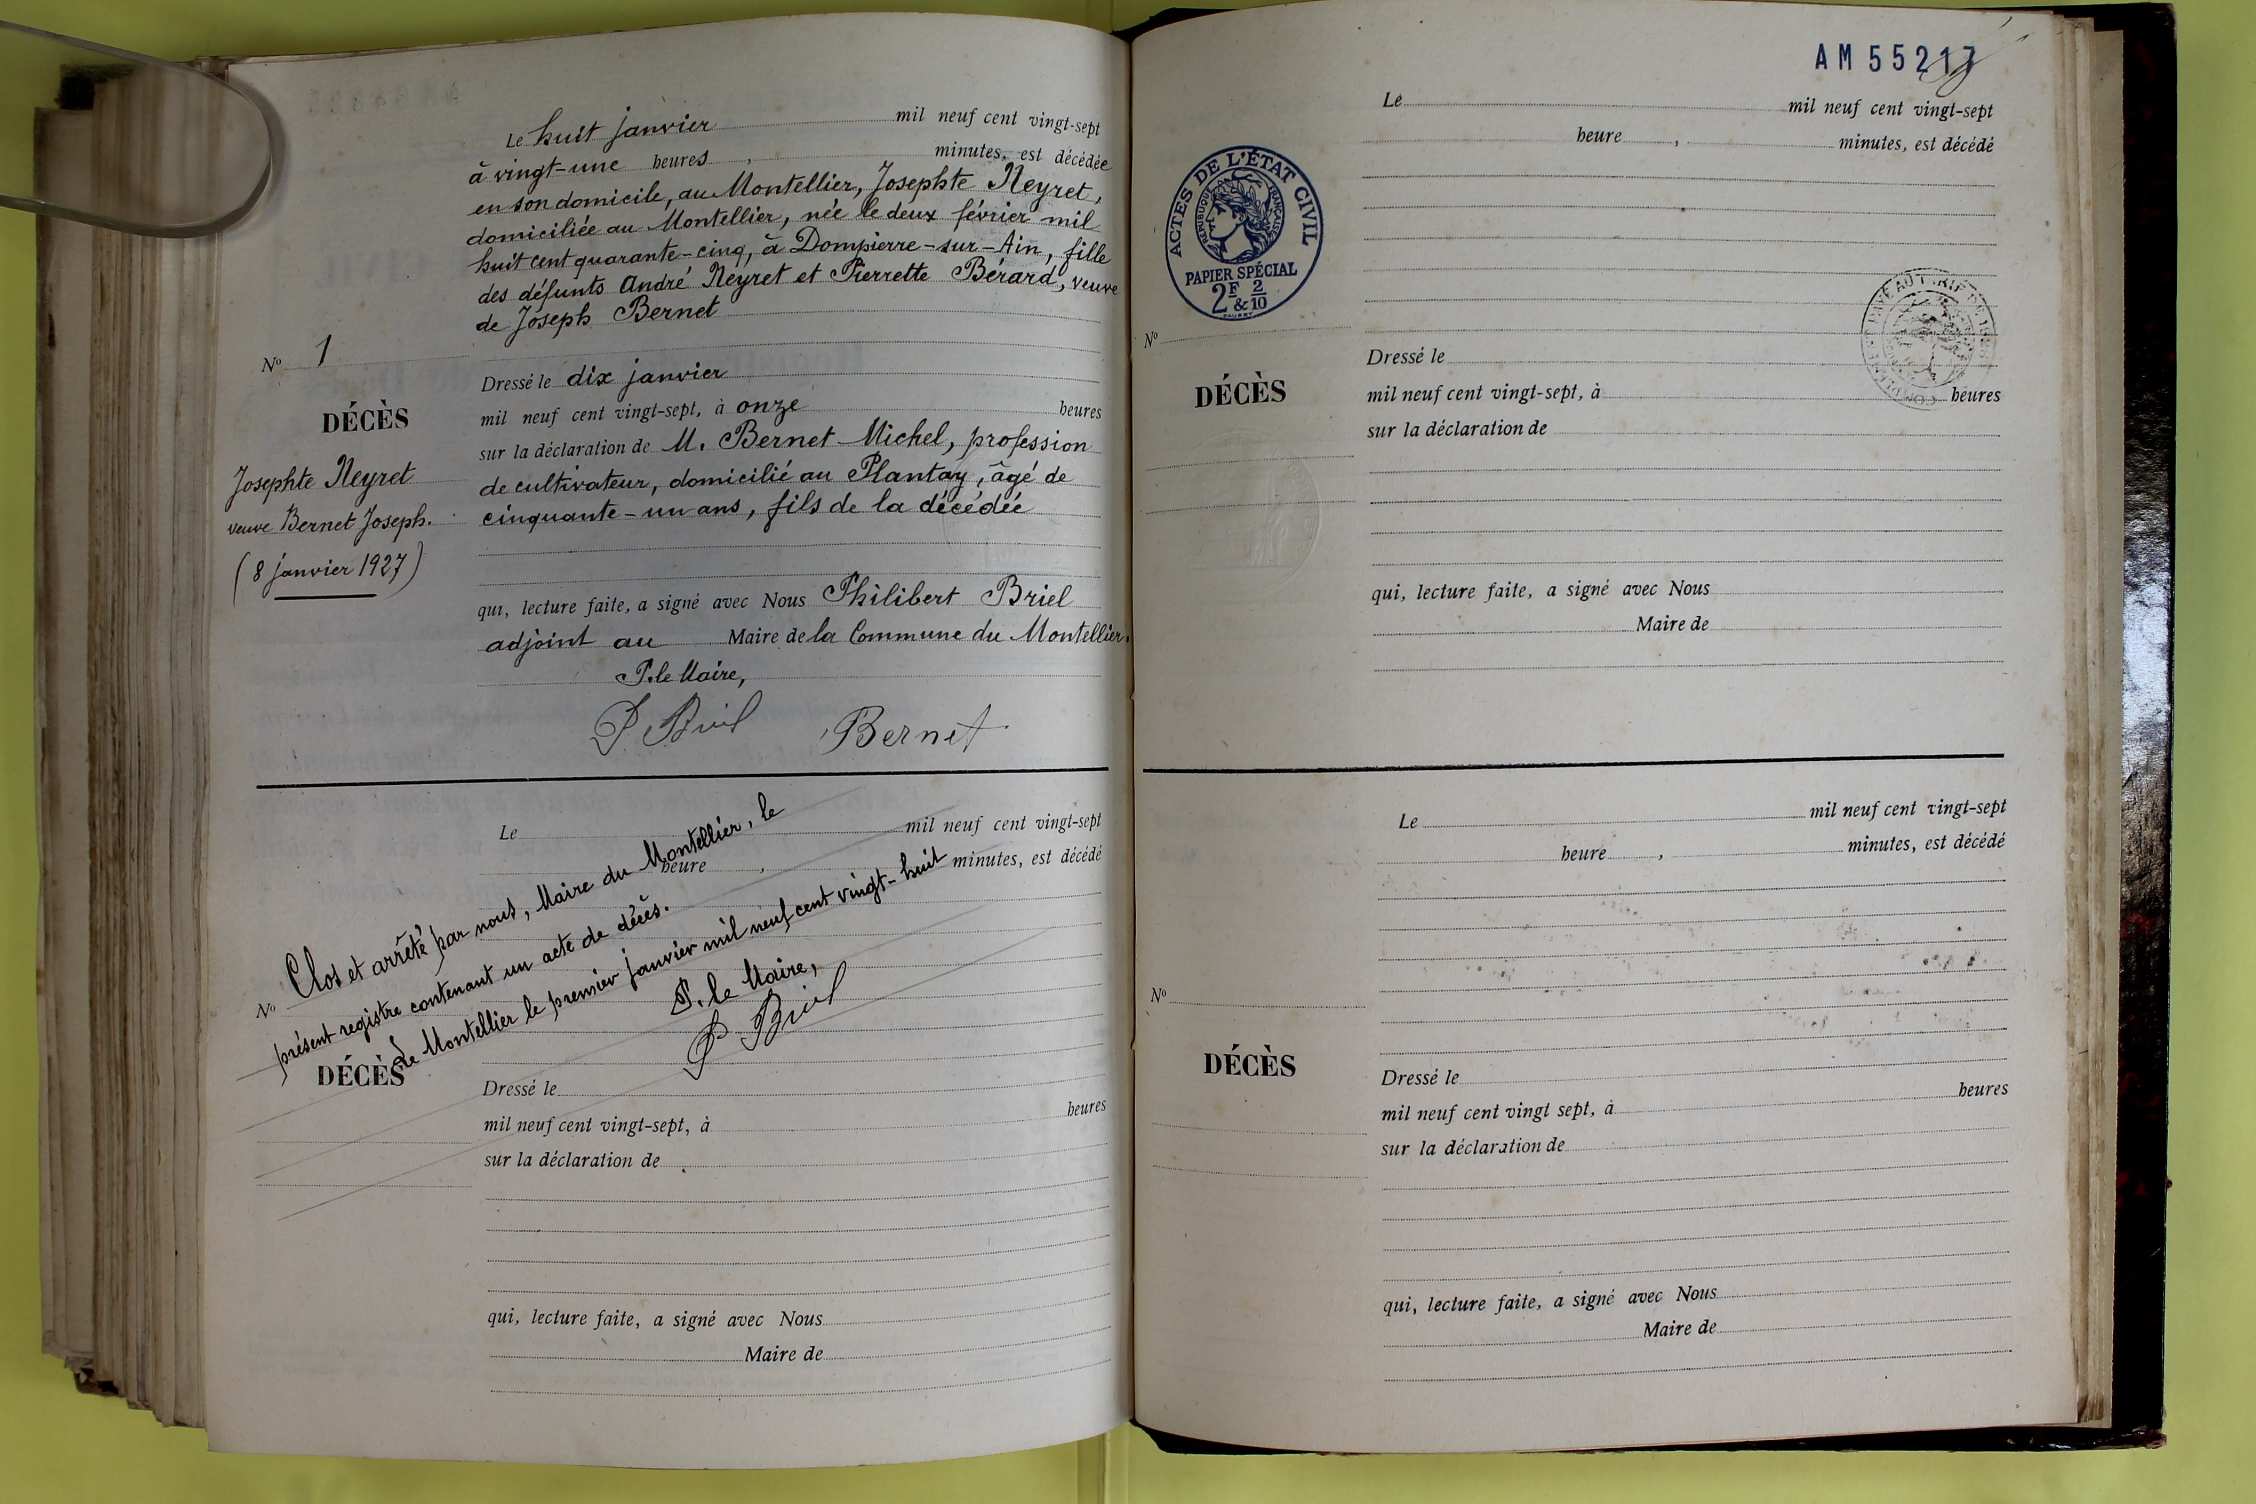 Le huit janvier mil neuf cent vingt-sept
à vingt-une heures , minutes, est décédée
en son domicile, au Montellier, Josephte Neyret,
domiciliée au Montellier, née le deux février mil
huit cent quarante-cinq, à Dompierre-sur-Ain, fille
des défunts André Neyret et Pierrette Bérard, veuve
de Joseph Bernet
N° 1
DÉCÈS
Josephte Neyret
veuve Bernet Joseph.
(8 janvier 1927)
Dressé le dix janvier
mil neuf cent vingt-sept, à onze heures
sur la déclaration de M. Bernet Michel, profession
de cultivateur, domicilié au Plantay, âgé de
cinquante-un ans, fils de la décédée
qui, lecture faite, a signé avec Nous Philibert Briel
adjoint au Maire de la Commune du Montellier.
P. le Maire,
P Briel Bernet
Le mil neuf cent vingt-sept
heure , minutes, est décédé
N°
DÉCÈS
Clos et arrêté par nous, Maire du Montellier, le
présent registre contenant un acte de décès.
Le Montellier le premier janvier mil neuf cent vingt-huit
P. le Maire,
P Briel
Dressé le
mil neuf cent vingt-sept, à heures
sur la déclaration de
qui, lecture faite, a signé avec Nous
Maire de
AM 55217
Le mil neuf cent vingt-sept
heure , minutes, est décédé
ACTES DE L'ÉTAT CIVIL
RÉPUBLIQUE FRANÇAISE
PAPIER SPÉCIAL
2F & 2/10
N°
DÉCÈS
Dressé le
mil neuf cent vingt-sept, à heures
sur la déclaration de
qui, lecture faite, a signé avec Nous
Maire de
Le mil neuf cent vingt-sept
heure , minutes, est décédé
N°
DÉCÈS
Dressé le
mil neuf cent vingt sept, à heures
sur la déclaration de
qui, lecture faite, a signé avec Nous
Maire de